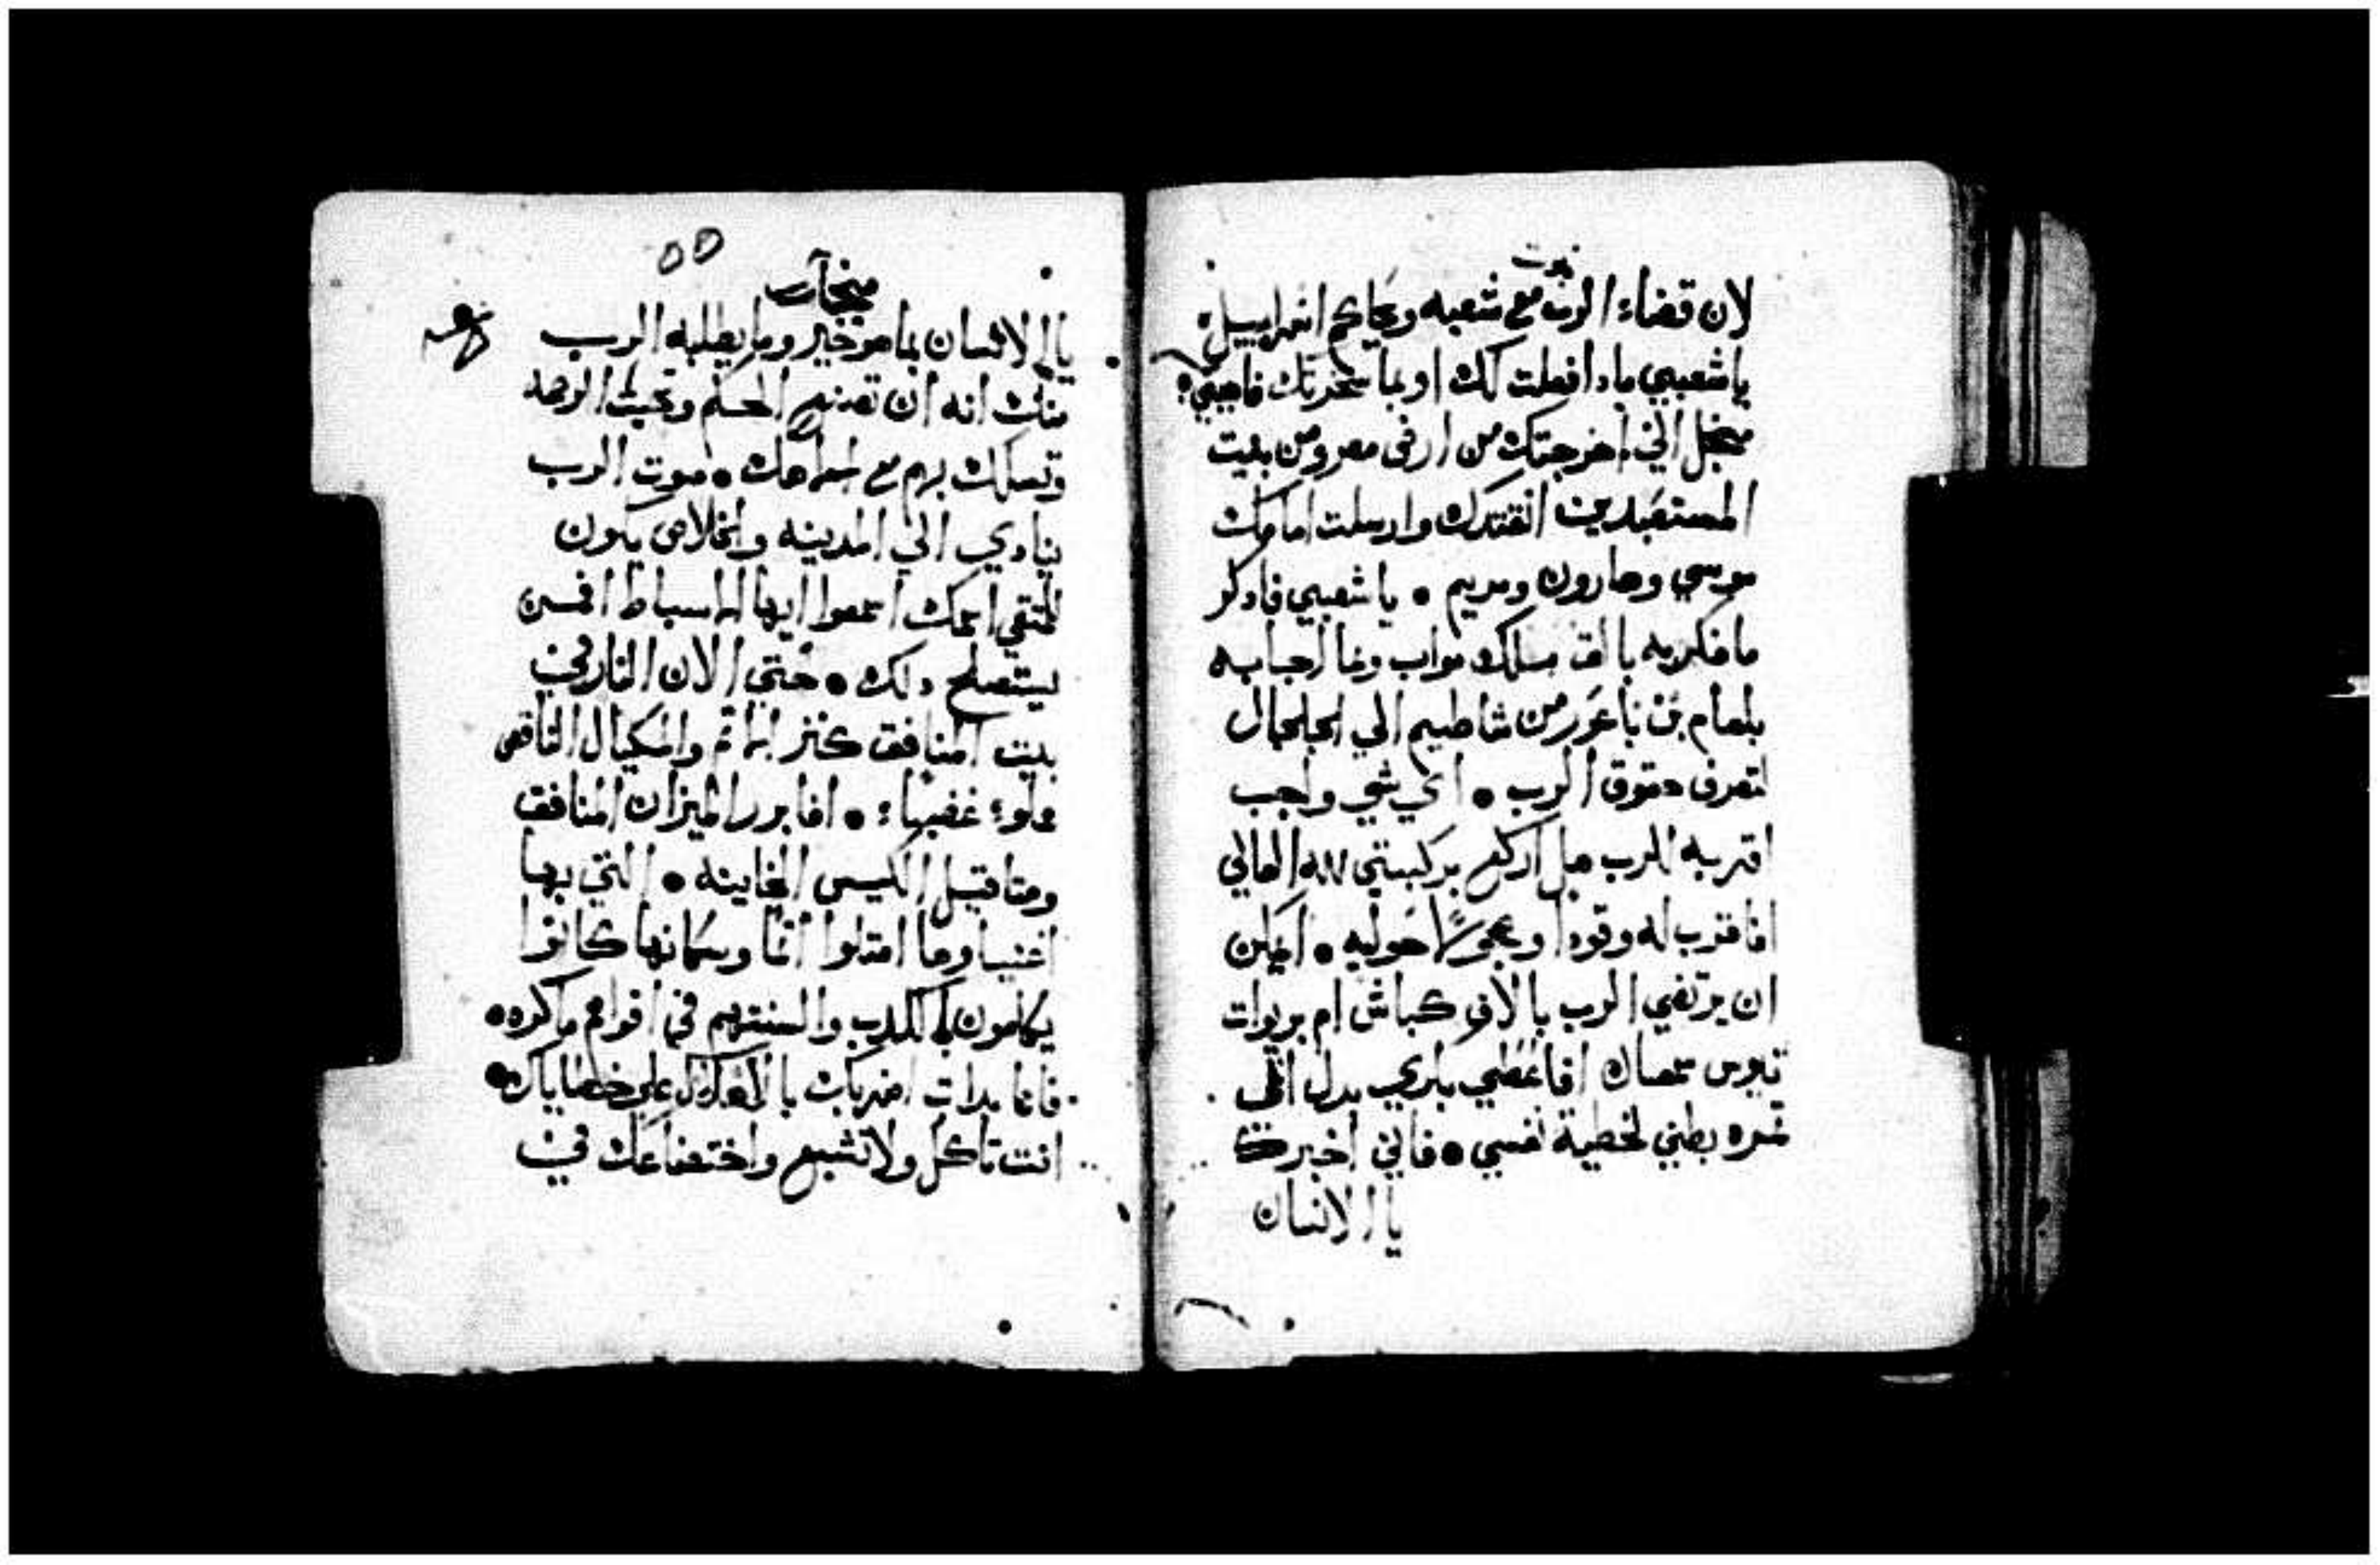 نبوت
لان قضاء الرب مع شعبه ويحاكم اسراييل
ياشعبي مادافعلت لك او بما سخرتك فاجبني
منجل اني اخرجتك من ارض مصر ومن بيت
المستعبدين انقدتك وارسلت امامك
موسي وهارون ومريم • ياشعبي فادكر
مافكر به بالاق ملك مواب وما اجابه
بلعام بن باعور من شاطيم الي الجلجال
لتعرف حقوق الرب • اي شي واجب
اقربه للرب هل اركع بركبتي لله العالي
افاقرب له وقودا وعجولا حوليه • ايمكن
ان يرتضي الرب بالاف كباش ام بربوات
تيوس سمان افاعطي بكري بدل اثمي
ثمره بطني لخطية نفسي • فاني اخبرك
ياالانسان
٥٥
ميخا
ياالانسان بماهو خير وما يطلبه الرب
منك انه ان تصنع الحكم وتحب الرحمه
وتسلك برم مع الاهك • صوت الرب
ينادي الي المدينه والخلاص يكون
لمتقي اسمك اسمعوا ايها الاسباط افمن
يستصلح دلك • حتي الان النار في
بيت المنافق كنز الاثم والمكيال الناقص
مملوء غضبا • افابرر الميزان المنافق
ومثاقيل الكيس الغاينه • التي بها
اغنياوها امتلوا اثما وسكانها كانوا
يكلمون بالكدب والسنتهم في افواههم ماكره •
فانا بدات اضربك علي خطاياك •
انت تاكل ولاتشبع واختضاعك في